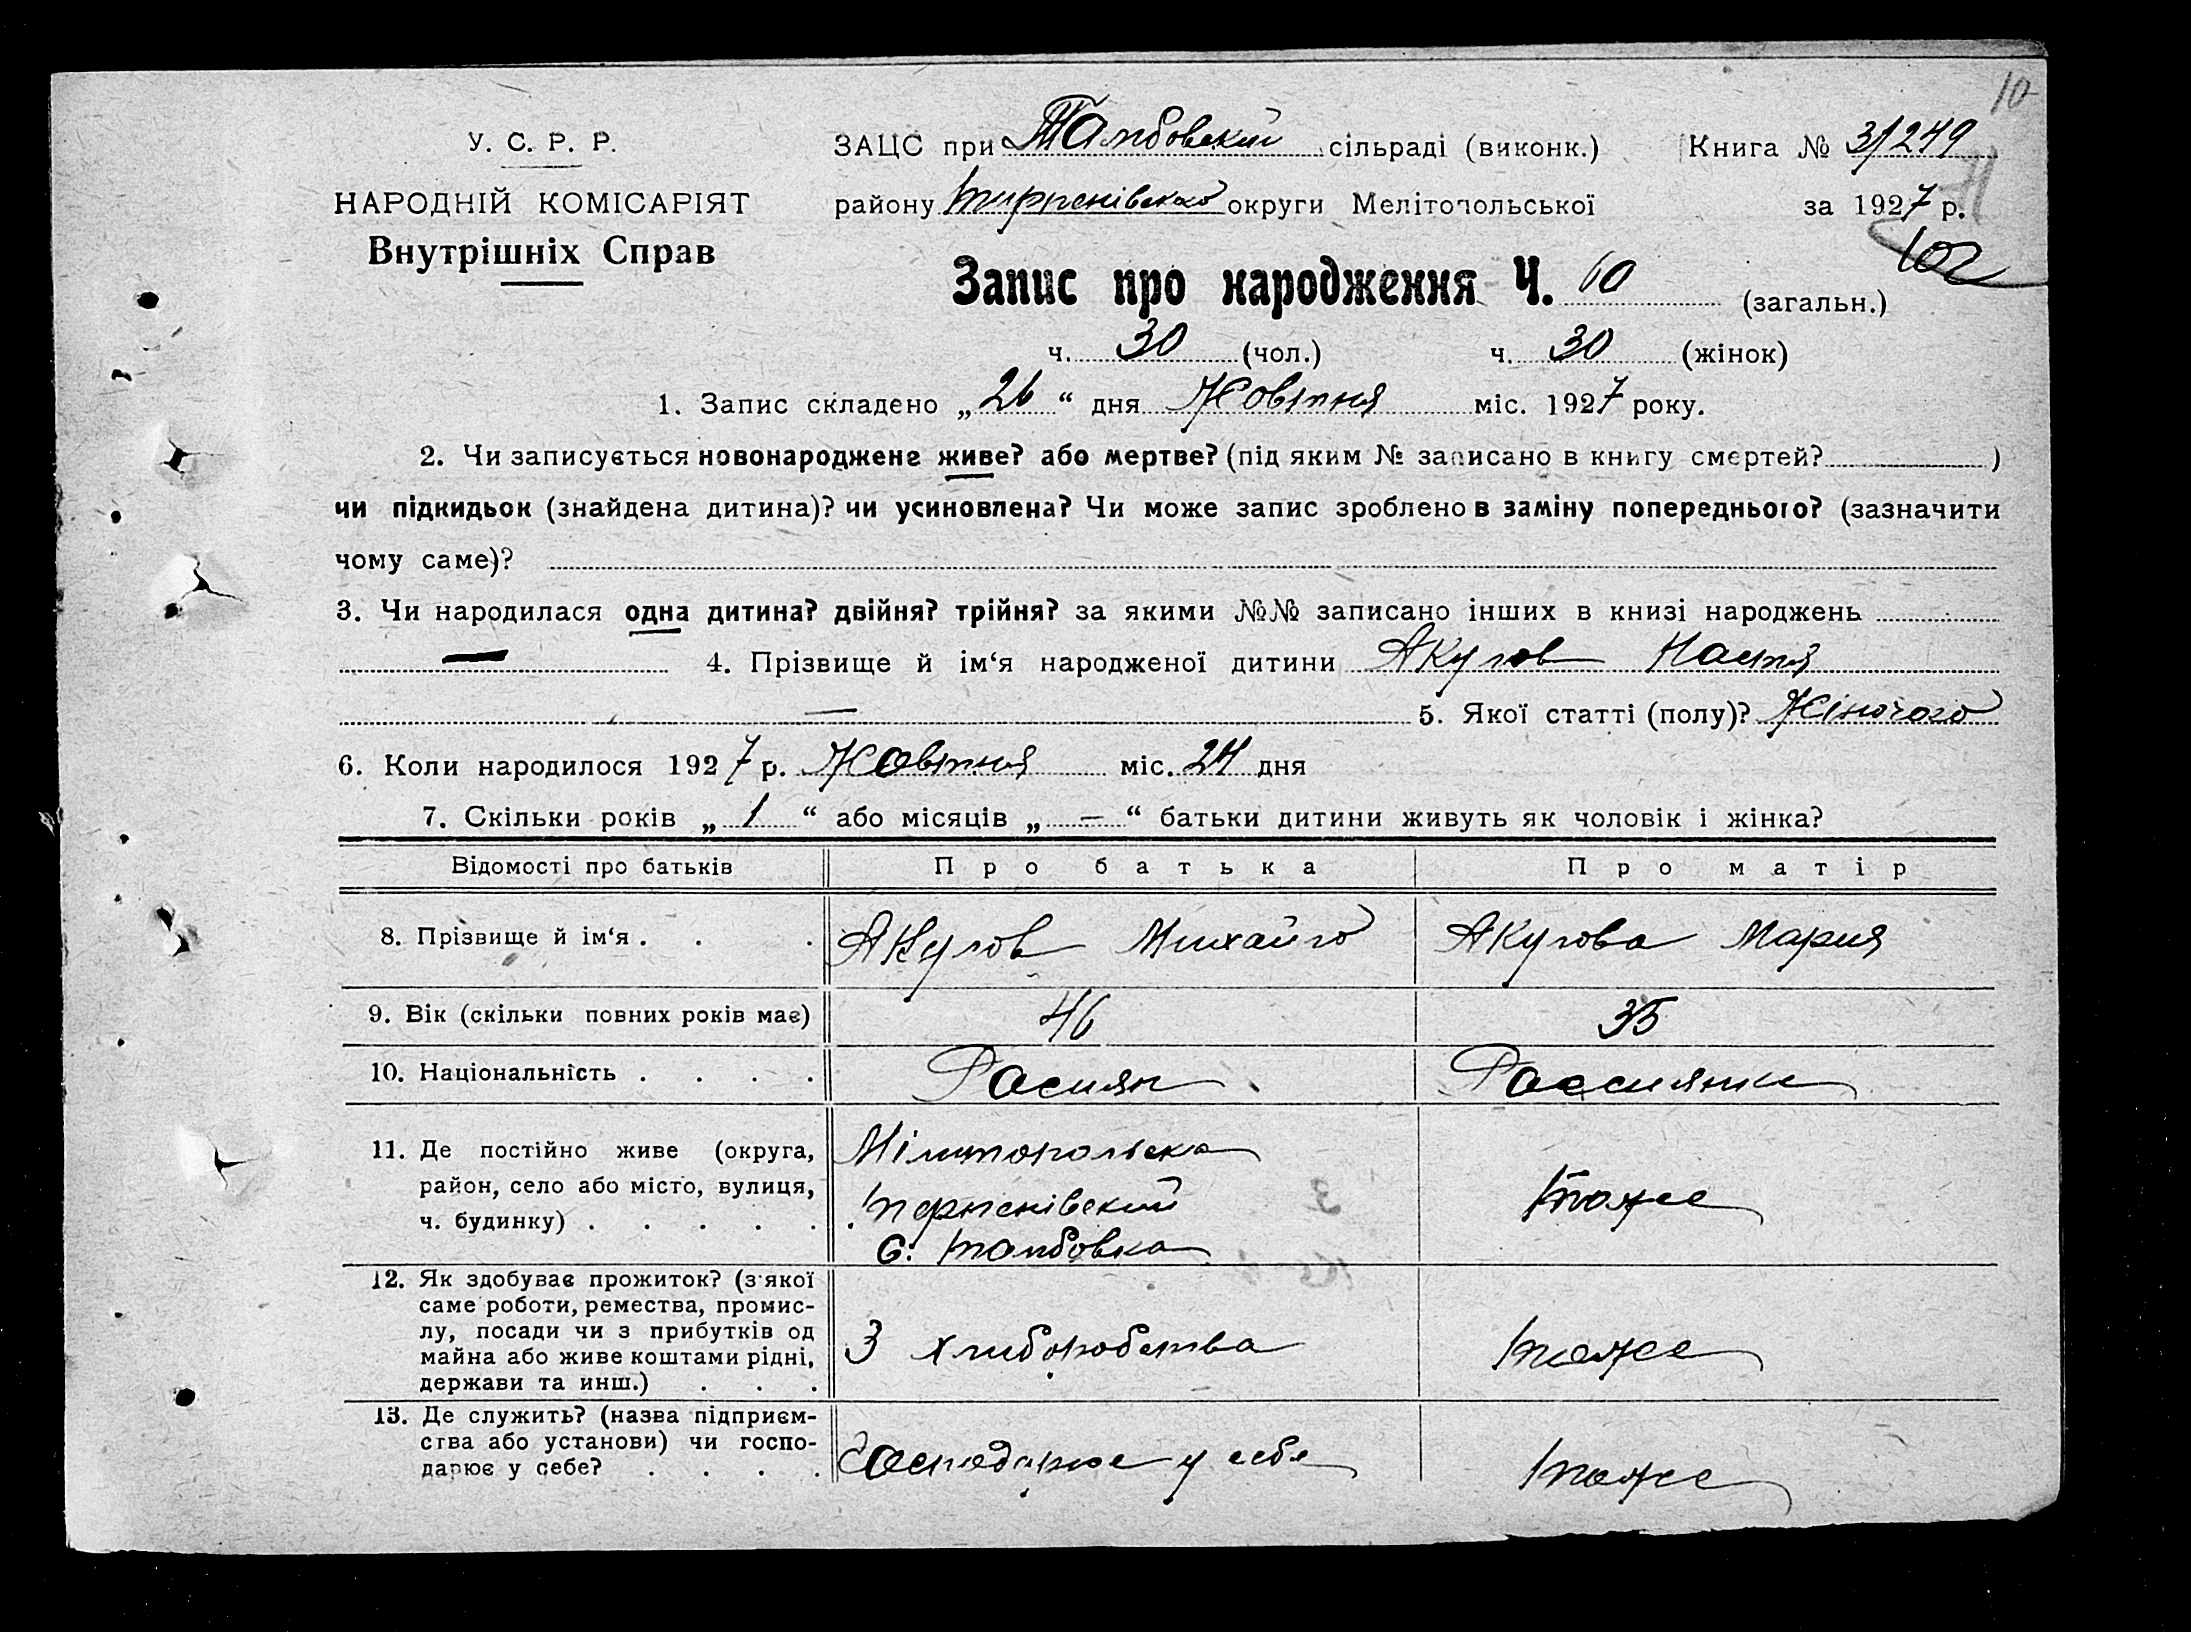 10
У. С. Р. Р.
НАРОДНІЙ КОМІСАРІЯТ
Внутрішніх Справ
ЗАЦС при Тамбовский сільраді (виконк.) Книга № 3/249
району округи Мелітопольської за 1927 р.
102
Запис про народження Ч. 60 (загальн.)
ч. 30 (чол.) ч. 30 (жінок)
1. Запис складено „26“ дня Жовтня міс. 1927 року.
2. Чи записується новонароджене живе? або мертве? (під яким № записано в книгу смертей? )
чи підкидьок (знайдена дитина)? чи усиновлена? Чи може запис зроблено в заміну попереднього? (зазначити
чому саме)?
3. Чи народилася одна дитина? двійня? трійня? за якими №№ записано інших в книзі народжень
— 4. Прізвище й ім‘я народженої дитини Акулов Настя
— 5. Якої статті (полу)? Жіночого
6. Коли народилося 1927 р. Жовтня міс. 24 дня
7. Скільки років „1“ або місяців „—“ батьки дитини живуть як чоловік і жінка?
Відомості про батьків Про батька Про матір
8. Прізвище й ім‘я . . . Акулов Михайло Акулова Мария
9. Вік (скільки повних років має) 46 35
10. Національність . . . . Росиян Россиянка
11. Де постійно живе (округа,
район, село або місто, вулиця,
ч. будинку) . . . . .
Мілитопольска
С. Тамбовка
тоже
12. Як здобуває прожиток? (з якої
саме роботи, ремества, промис-
лу, посади чи з прибутків од
майна або живе коштами рідні,
держави та инш.) . . .
З хлиборобства
тоже
13. Де служить? (назва підприєм-
ства або установи) чи госпо-
дарює у себе? . . . .
Господарює у себе
тоже